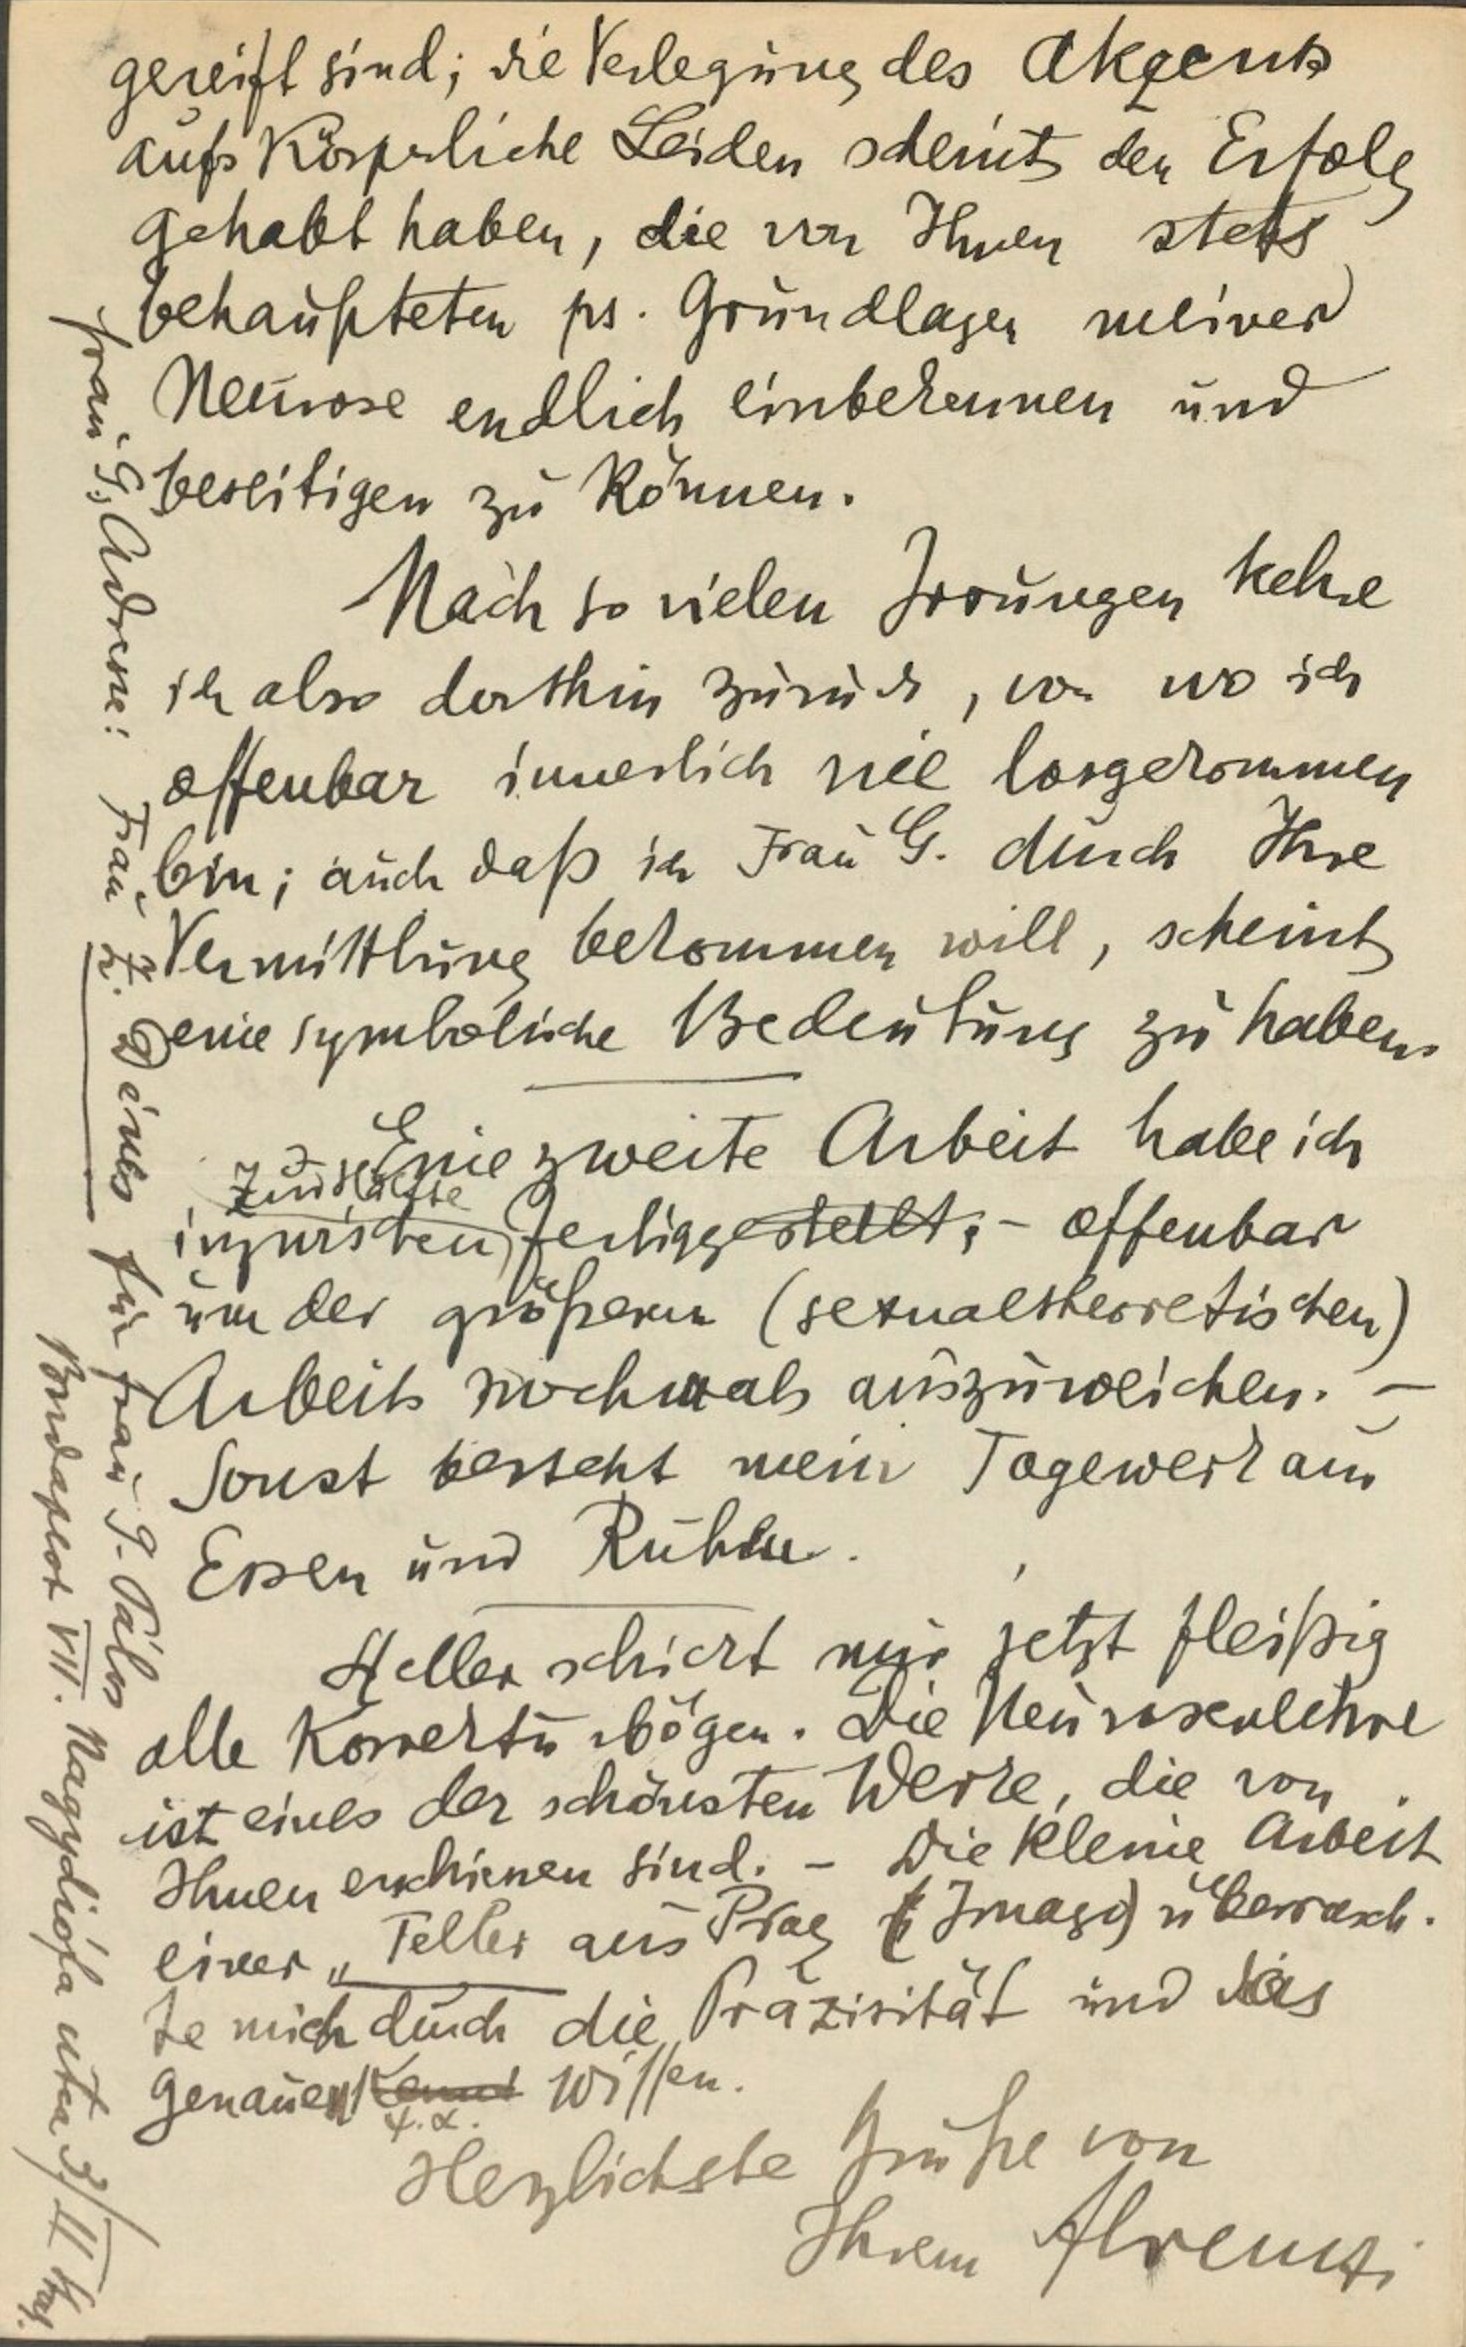 gereift sind; die Verlegung des Akzents
aufs Körperliche Leiden scheint den Erfolg
gehabt haben, die von Ihnen stets
behaupteten ps. Grundlagen meiner
Neurose endlich einbekennen und
beseitigen zu können.
Nach so vielen Irrungen kehre
ich also dorthin zurück, von wo ich
offenbar innerlich nie losgekommen
bin; auch daß ich Frau G. durch Ihre
Vermittlung bekommen will, scheint
eine symbolische Bedeutung zu haben.
Eine zweite Arbeit habe ich
zur Hälfte
inzwischen fertiggestellt, – offenbar
um der größeren (sexualtheoretischen)
Arbeit nochmals auszuweichen. –
Sonst besteht mein Tagewerk aus
Essen und Ruhen.
Heller schickt mir jetzt fleißig
alle Korrekturbögen. Die Neurosenlehre
ist eines der schönsten Werke, die von
Ihnen erschienen sind. – Die kleine Arbeit
einer „Teller aus Prag (Imago) überrasch-
te mich durch die Präzisität und das
genaue Wissen.
Herzlichste Grüße von
Ihrem Ferenczi
Frau G.s Adresse: Frau Z. Dénes für Frau G. Pálos
Budapest VII. Nagydiófa utca 3/II